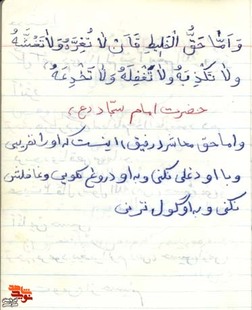 وَ اَمّا حَقُّ الْخَلیطِ فَاَنْ لا تُغِرَّهُ وَلا تَغُشَّهُ
وَلا تَکْذِبَهُ وَلا تُغْفِلَهُ وَلا تَخْدِعَهُ
حضرت امام سجاد (ع)
و اما حق معاشر (رفیق) اینست که او را نفریبی
و با او دغلی نکنی و به او دروغ نگویی و غافلش
نکنی و به او گول نزنی